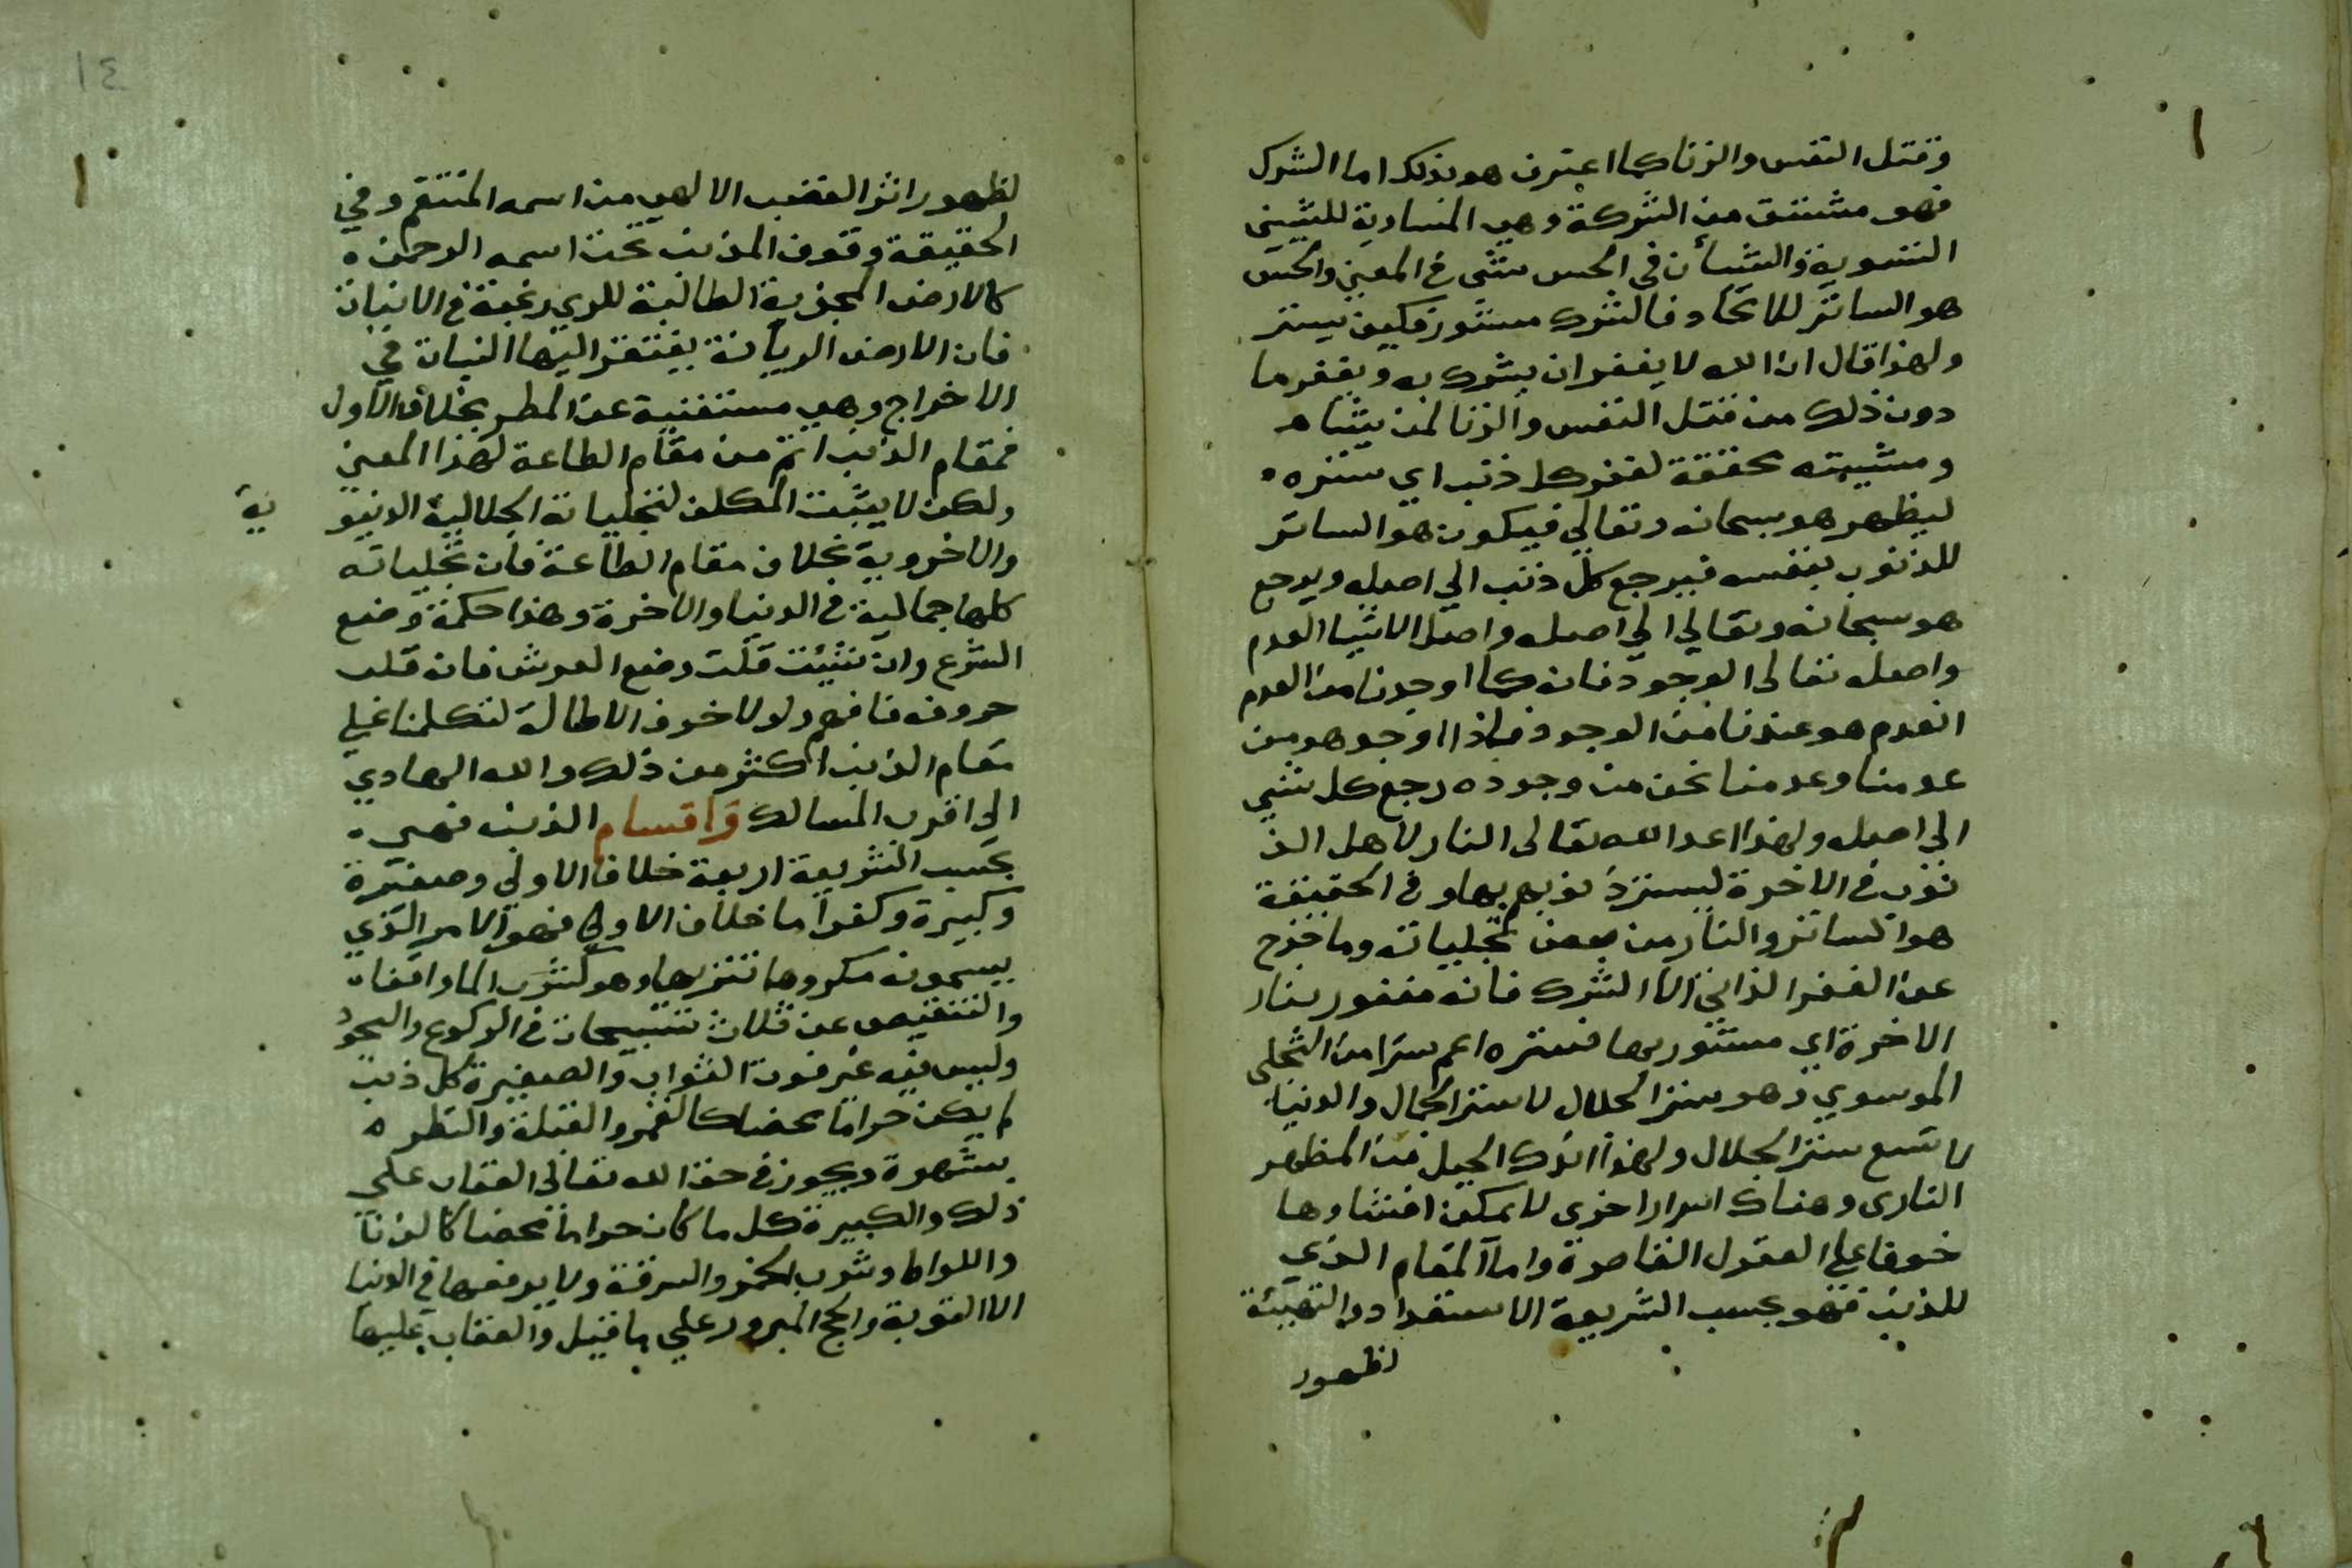 وقتل النفس والزنا كما اعترف هو بذلك اما الشرك
فهو مشتق من الشركة وهي المساوية للشيئين
التسوية والشيأن في الحس شئ في المعني والحس
هو الساتر للاتحاد فالشرك مستور فكيف يستر
ولهذا قال ان الله لا يغفر ان يشرك به ويغفر ما
دون ذلك من قتل النفس والزنا لمن يشاء
ومشيئته محققة لغفر كل ذنب اي ستره
ليظهر هو سبحانه وتعالي فيكون هو الساتر
للذنوب بنفسه فيرجع كل ذنب الي اصله ويرجع
هو سبحانه وتعالي الي اصله واصل الاشيا العدم
واصله تعالى الوجود فانه كما اوجدنا من العدم
انعدم هو عندنا من الوجود فاذا اوجد هو من
عدمنا وعدمنا نحن من وجوده رجع كل شي
الي اصله ولهذا اعد الله تعالى النار لاهل الذ
نوب في الاخرة ليستر ذنوبهم بها و في الحقيقة
هو الساتر والنار من بعض تجلياته وما خرج
عن الغفر الذاتي الا الشرك فانه مغفور بنار
الاخرة اي مستور بها فستره اعم سترا من التجلى
الموسوي وهو ستر الجلال لا ستر الجمال والدنيا
لا تسع ستر الجلال ولهذا اندك الجبل من المظهر
النارى وهناك اسرار اخرى لا يمكن افشاوها
خوفا علي العقول القاصرة واما المقام الذي
للذنب فهو بحسب الشريعة الاستعداد والتهيئة
لظهور
١٤
لظهور اثر الغضب الالهي من اسمه المنتقم وفي
الحقيقة وقوف المذنب تحت اسمه الرحمن
كالارض المجذبة الطالبة للري رغبة في الانبات
فان الارض الريانة يفتقر اليها النبات في
الاخراج وهي مستغنية عن المطر بخلاف الاول
فمقام الذنب اتم من مقام الطاعة لهذا المعني
ولكن لا يثبت المكلف لتجليات الجلالية الدنيو
ية
والاخروية بخلاف مقام الطاعة فان تجلياته
كلها جمالية في الدنيا والاخرة وهذا حكمة وضع
الشرع وان شئت قلت وضع العرش فانه قلب
حروفه فافهم ولولا خوف الاطالة لتكلمنا علي
مقام الذنب اكثر من ذلك والله الهادي
الي اقرب المسالك واقسام الذنب فهي
بحسب الشريعة اربعة خلاف الاولي وصغيرة
وكبيرة وكفر اما خلاف الاولي فهو الامر الذي
يسمونه مكروها تنزيها وهو كشرب الما واقفا
والتنقيص عن ثلاث تسبيحات في الركوع والسجود
وليس فيه غير فوت الثواب والصغيرة كل ذنب
لم يكن حراما محضا كالغمز والقبلة والنظر
بشهوة ويجوز في حق الله تعالى العقاب علي
ذلك والكبيرة كل ما كان حراما محضا كالزنا
واللواط وشرب الخمر والسرقة ولا يرفعها في الدنيا
الا التوبة والحج المبرور علي ما قيل والعقاب عليها